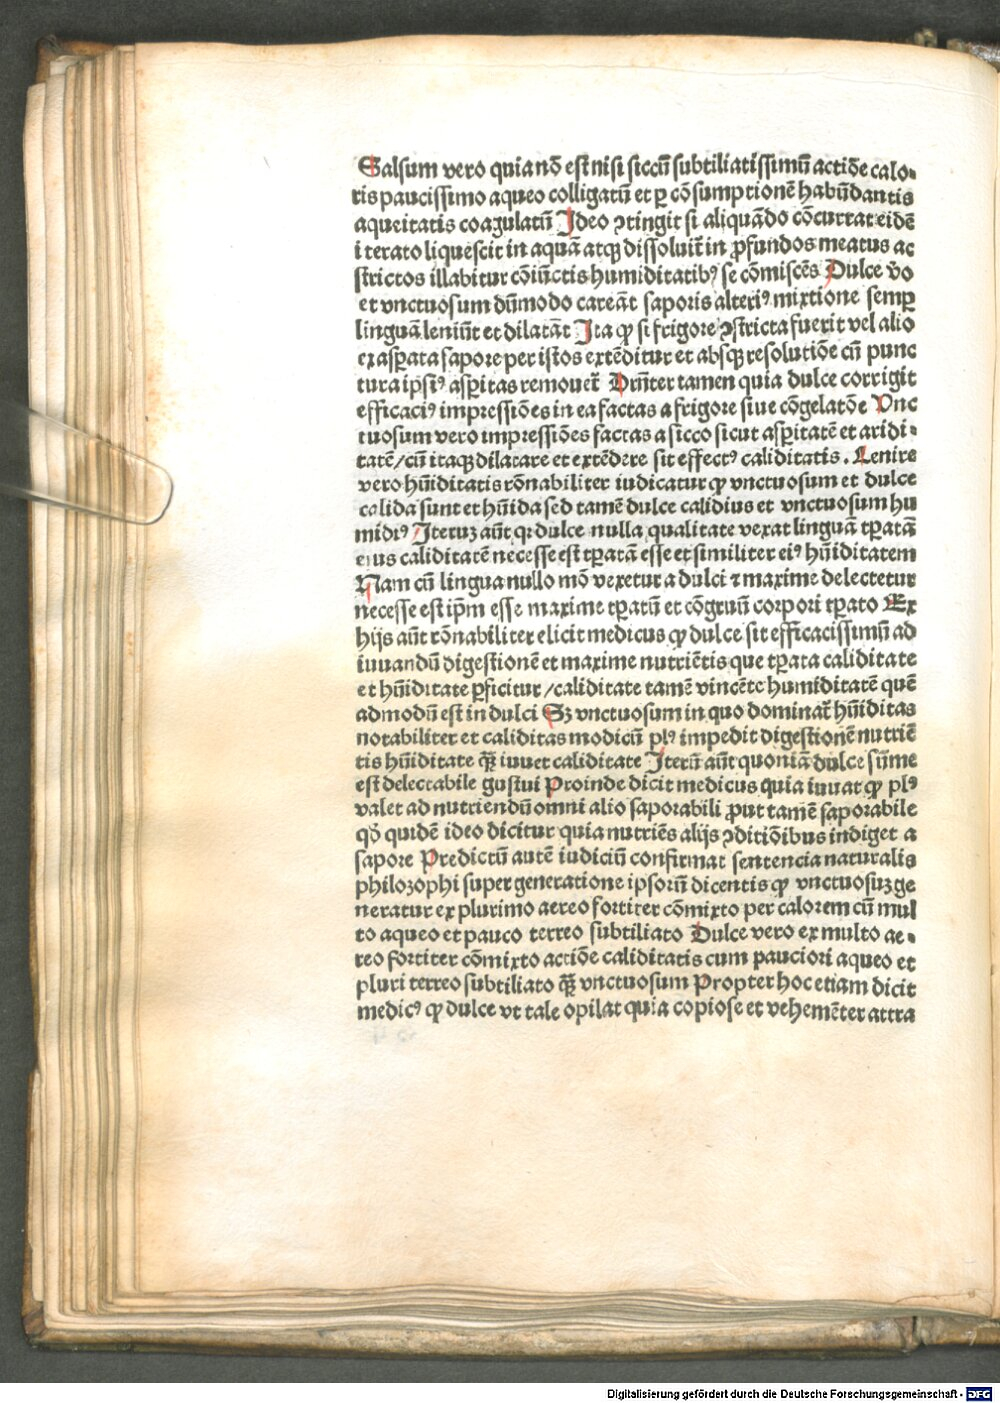 Salsum vero quia nō est nisi siccū subtiliatissimū actiōe calo⸗
ris paucissimo aqueo colligatū et ꝑ cōsumptionē habūdantis
aqueitatis coagulatū Ideo ↄtingit si aliquādo cōcurrat eidē
iterato liquescit in aquā atqꝫ dissoluit̄ in ꝓfundos meatus ac
strictos illabitur cōiūctis humiditatibꝰ se cōmiscēs Dulce v̄o
et vnctuosum dūmodo careāt saporis alteriꝰ mixtione semꝑ
linguā leniūt et dilatāt Ita ꝙ si frigore ↄstricta fuerit vel alio
exasꝑata sapore per istos extēditur et absqꝫ resolutiōe cū punc
tura ipsiꝰ asꝑitas remouet̄ Drn̄ter tamen quia dulce corrigit
efficaciꝰ impressiōes in ea factas a frigore siue cōgelatōe Vnc
tuosum vero impressiōes factas a sicco sicut asꝑitatē et aridi⸗
tatē/cū itaqꝫ dilatare et extēdere sit effectꝰ caliditatis. Lenire
vero hūiditatis rōnabiliter iudicatur ꝙ vnctuosum et dulce
calida sunt et hūida sed tamē dulce calidius et vnctuosum hu
midiꝰ Iteruꝫ aūt qꝛ dulce nulla qualitate vexat linguā tꝑatā
eius caliditatē necesse est tꝑatā esse et similiter eiꝰ hūiditatem
Nam cū lingua nullo mō vexetur a dulci ⁊ maxime delectetur
necesse est ip̄m esse maxime tꝑatū et cōgruū corpori tꝑato Ex
hijs aūt rōnabiliter elicit medicus ꝙ dulce sit efficacissimū ad
iuuandū digestionē et maxime nutriētis que tꝑata caliditate
et hūiditate ꝑficitur/caliditate tamē vincēte humiditatē quē
admodū est in dulci Sꝫ vnctuosum in quo dominat̄ hūiditas
notabiliter et caliditas modicū plꝰ impedit digestionē nutriē
tis hūiditate q̄ꝫ iuuet caliditate Iterū aūt quoniā dulce sūme
est delectabile gustui Proinde dicit medicus quia iuuat ꝙ plꝰ
valet ad nutriendū omni alio saporabili ꝓut tamē saporabile
qd̄ quidē ideo dicitur quia nutriēs alijs ↄditiōibus indiget a
sapore Predictū autē iudiciū confirmat sentencia naturalis
philozophi super generatione ipsorū dicentis ꝙ vnctuosuꝫ ge
neratur ex plurimo aereo fortiter cōmixto per calorem cū mul
to aqueo et pauco terreo subtiliato Dulce vero ex multo ae⸗
reo fortiter cōmixto actiōe caliditatis cum pauciori aqueo et
pluri terreo subtiliato q̄ꝫ vnctuosum Propter hoc etiam dicit
medicꝰ ꝙ dulce vt tale opilat quia copiose et vehemēter attra
Digitalisierung gefördert durch die Deutsche Forschungsgemeinschaft - DFG